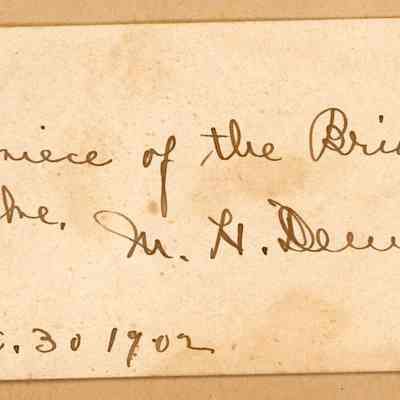 niece of the Bri
me. M. H. Dem
c. 30 1902